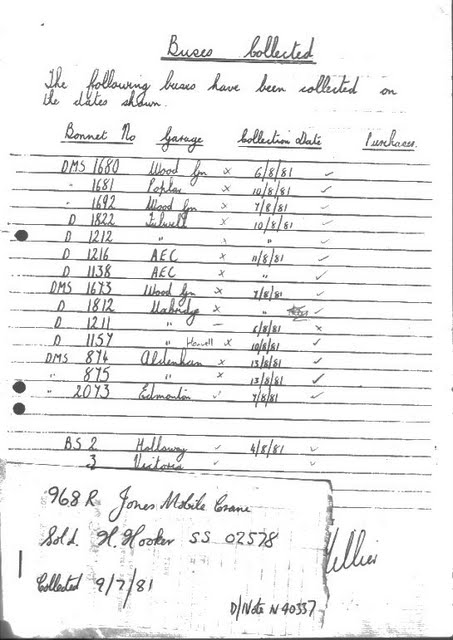 Buses Collected
The following buses have been collected on
the dates shown.
Bonnet No Garage Collection Date Purchaser.
DMS 1680 Wood Grn x 6/8/81 ✓
" 1681 Poplar x 10/8/81 ✓
" 1692 Wood Grn x 7/8/81 ✓
D 1822 Fulwell x 10/8/81 ✓
D 1212 " x " ✓
D 1216 AEC x 11/8/81 ✓
D 1138 AEC x " ✓
DMS 1673 Wood Grn x 7/8/81 ✓
D 1812 Uxbridge x " ✓
D 1211 " – 6/8/81 x
D 1157 " x 10/8/81 ✓
DMS 874 Aldenham x 13/8/81 ✓
" 875 " x 13/8/81 ✓
" 2073 Edmonton ✓ 7/8/81 ✓
BS 2 Holloway ✓ 4/8/81 ✓
3 Victoria ✓ ✓
968 R Jones Mobile Crane
Sold. H. Hooker SS 02578
Collected 9/7/81
D/Note N 40337